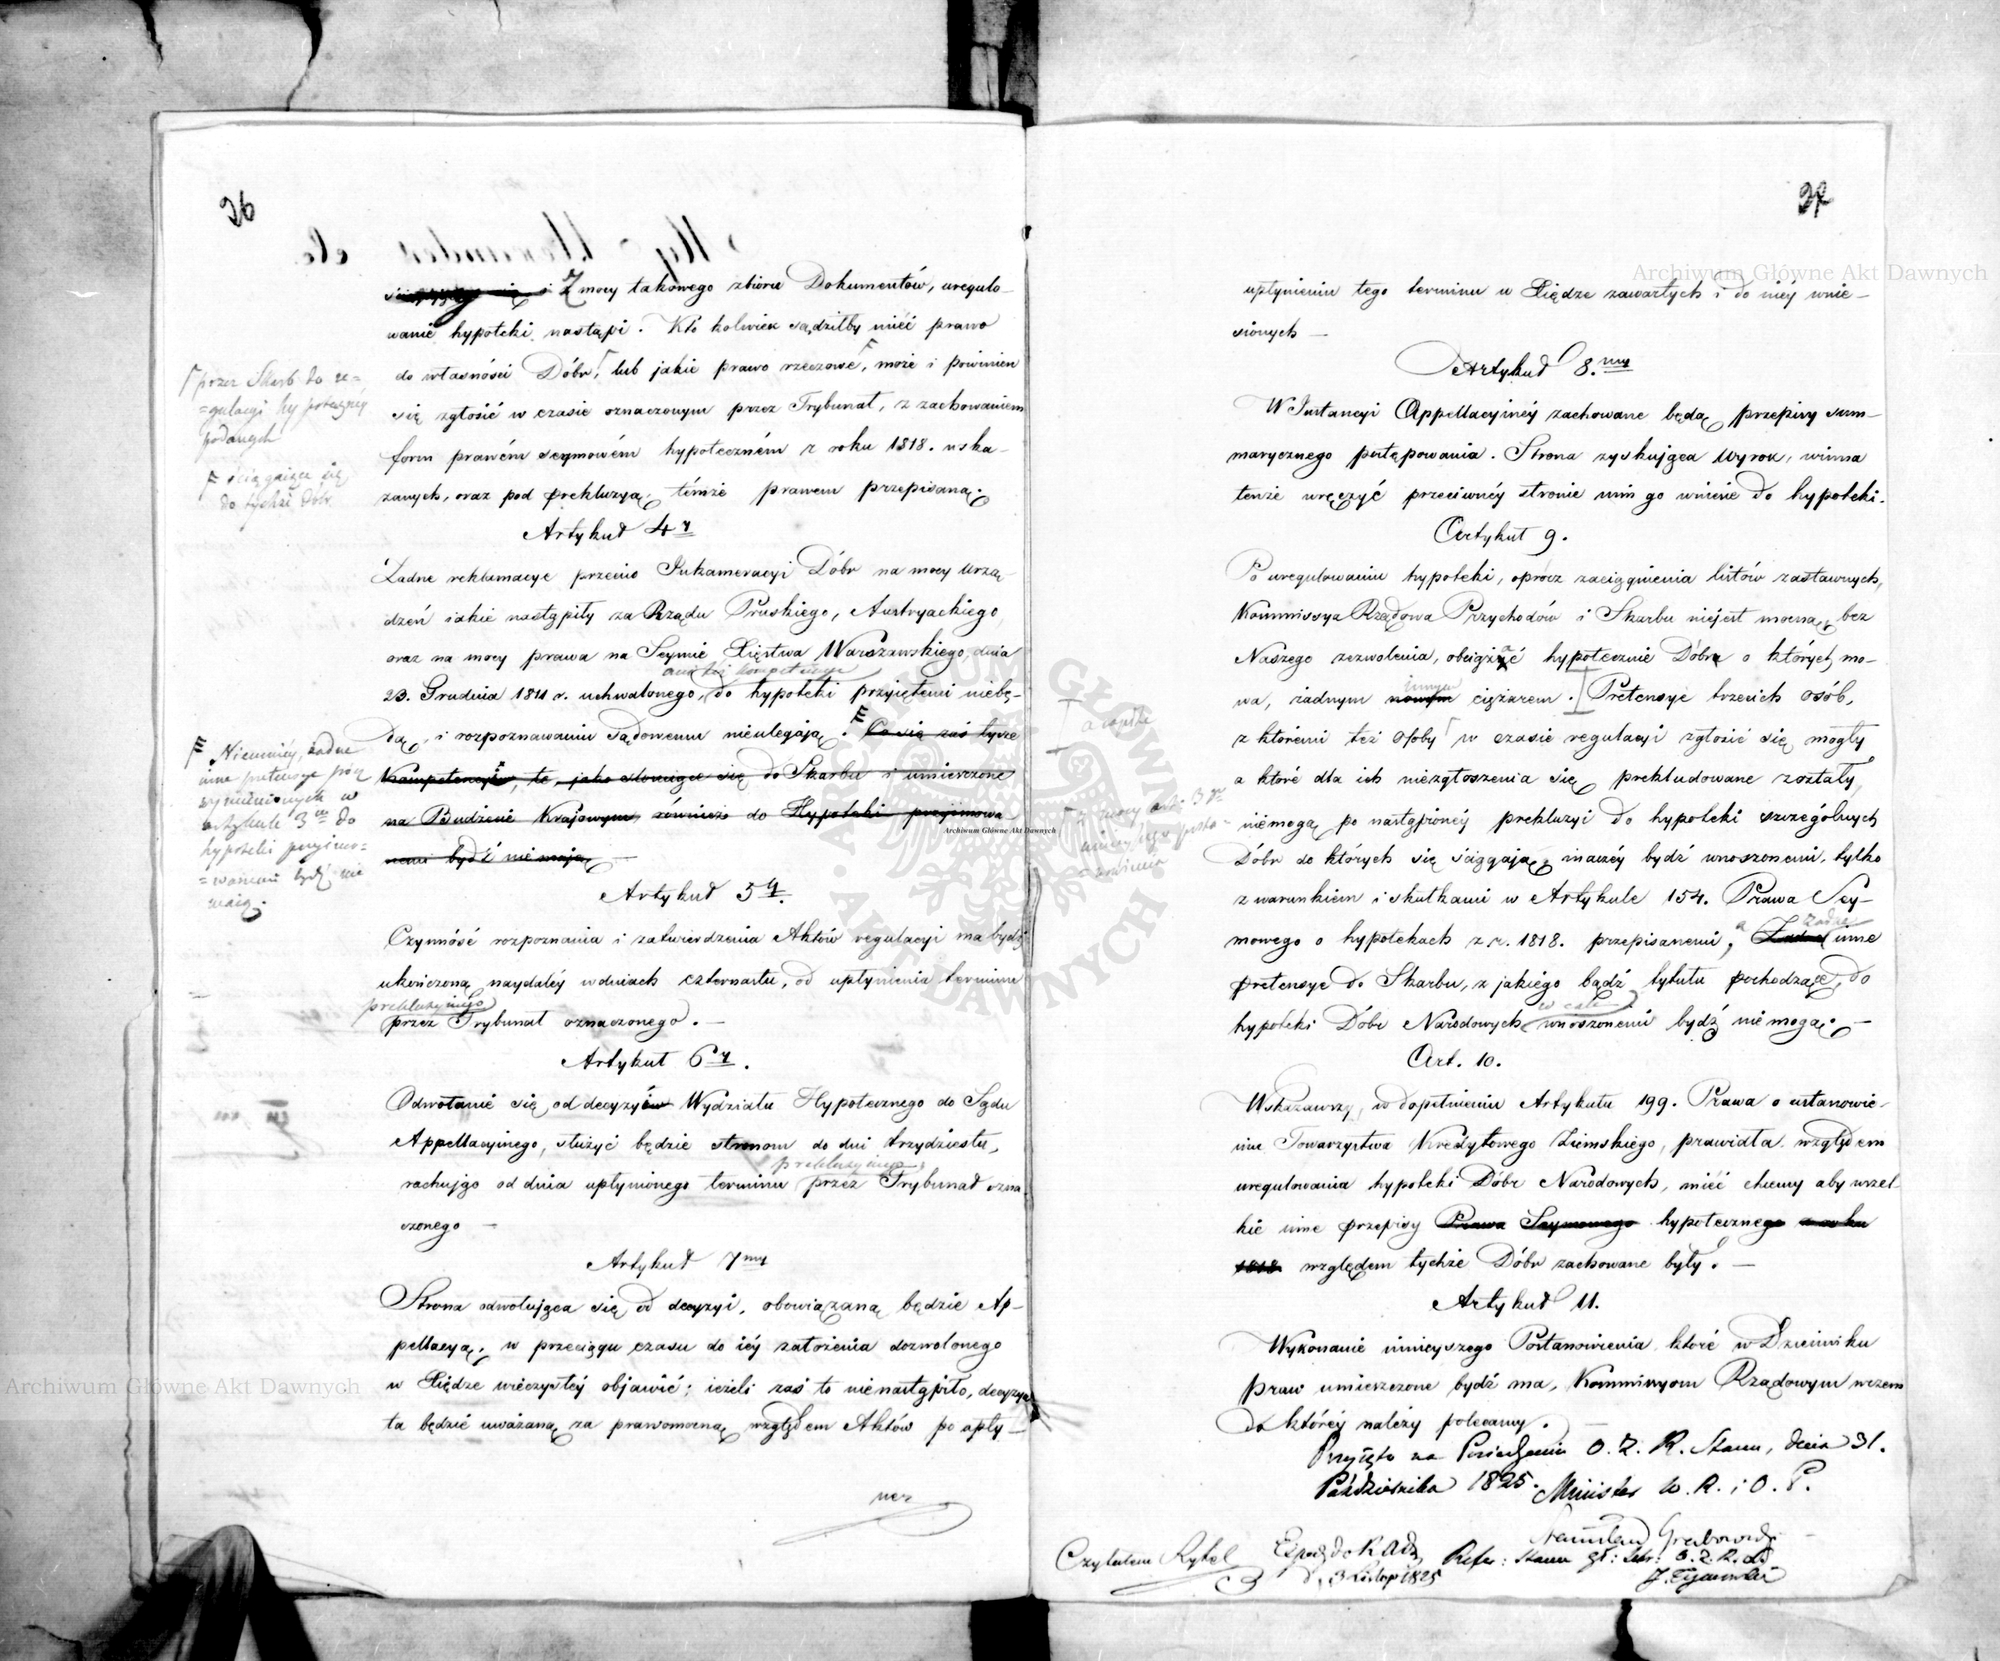 26
Z mocy takowego zbioru Dokumentów, uregulo-
wanie hypoteki nastąpi. Kto kolwiek sądziłby mieć prawo
do własności Dóbr, lub jakie prawo rzeczowe, może i powinien
się zgłosić w czasie oznaczonym przez Trybunał, z zachowaniem
form prawém seymowém hypoteczném z roku 1818. uska-
zanych, oraz pod prekluzyą, témże prawem przepisaną.
przez Skarb do re=
=gulacyi hypoteczney
podanych
ściągaiące się
do tychże dóbr
Artykuł 4y
Żadne reklamacye przeciw Inkameracyi Dóbr na mocy urzą-
dzeń iakie nastąpiły za Rządu Pruskiego, Austryackiego
oraz na mocy prawa na Seymie Xięstwa Warszawskiego, dnia
23. Grudnia 1811 r. uchwalonego, do hypoteki przyiętemi niebę-
dą, i rozpoznawaniu Sądowemu nieulegają. Co się zaś tycze
Kompetencyi, te, jako ściągaiące się do Skarbu i umieszczone
na Budżecie Krajowym, również do Hypoteki przyjmowa-
nemi bydź nie mają,
Niemniéy, żadne
inne pretensye prócz
wymienionych w
artykule 3m do
hypoteki przyimo-
=wanemi bydź nie
maią.
Artykuł 5y.
Czynność rozpoznania i zatwierdzenia Aktów regulacyi ma bydź
ukończoną naydaléy w dniach czternastu, od upłynienia terminu
prekluzyinego
przez Trybunał oznaczonego. —
Artykuł 6y.
Odwołanie się od decyzyi Wydziału Hypotecznego do Sądu
Appellacyinego, służyć będzie stronom do dni trzydziestu,
prekluzyinego
rachując od dnia upłynionego terminu przez Trybunał ozna-
czonego —
Artykuł 7my
Strona odwołująca się od decyzyi, obowiązaną będzie Ap-
pellacyą, w przeciągu czasu do iéy założenia dozwolonego
w Xiędze wieczystéy objawić; ieżeli zaś to nienastąpiło, decyzya
ta będzie uważaną za prawomocną względem Aktów po upły-
nie
27
upłynieniu tego terminu w Xiędze zawartych i do niéy wnie-
sionych —
Artykuł 8.my
W Instancyi Appellacyinéy zachowane będą przepisy sum-
marycznego postępowania. Strona zyskująca wyrok, winna
tenże wręczyć przeciwnéy stronie nim go wniesie do hypoteki.
Artykuł 9.
Po uregulowaniu hypoteki, oprócz zaciągnienia listów zastawnych,
Kommissya Rządowa Przychodów i Skarbu niejest mocną, bez
Naszego zezwolenia, obciążać hypotecznie Dóbr o których mo-
wa, żadnym nowym innym ciężarem. Pretensye trzecich osób,
z któremi też osoby w czasie regulacyi zgłosić się mogły
a które dla ich niezgłoszenia się, prekludowane zostały,
niemogą po nastąpionéy prekluzyi do hypoteki szczególnych
Dóbr do których się ściągają, inaczéy bydź wnoszonemi, tylko
z warunkiem i skutkami w Artykule 154. Prawa Sey-
mowego o hypotekach z r. 1818. przepisanemi, a Żadne żadne inne
pretensye do Skarbu, z jakiego bądź tytułu pochodzące, do
hypoteki Dóbr Narodowych w cale wnoszonemi bydź niemogą. —
Art. 10.
Wskazawszy, w dopełnieniu Artykułu 199. Prawa o ustanowie-
niu Towarzystwa Kredytowego Ziemskiego, prawidła względem
uregulowania hypoteki Dóbr Narodowych, mieć chcemy aby wszel-
kie inne przepisy Prawa Seymowego hypotecznego z roku
1818 względem tychże Dóbr zachowane były. —
Artykuł 11.
Wykonanie ninieyszego Postanowienia które w Dzienniku
praw umieszczone bydź ma, Kommissyom Rządowym wczem
do któréy należy polecamy. —
Przyjęto na Posiedzeniu O. Z. R. Stanu, dnia 31.
Października 1825. Minister W. R. i O. P.
Stanisław Grabowski
Czytałem Rykel
d. 3 Listop 1825